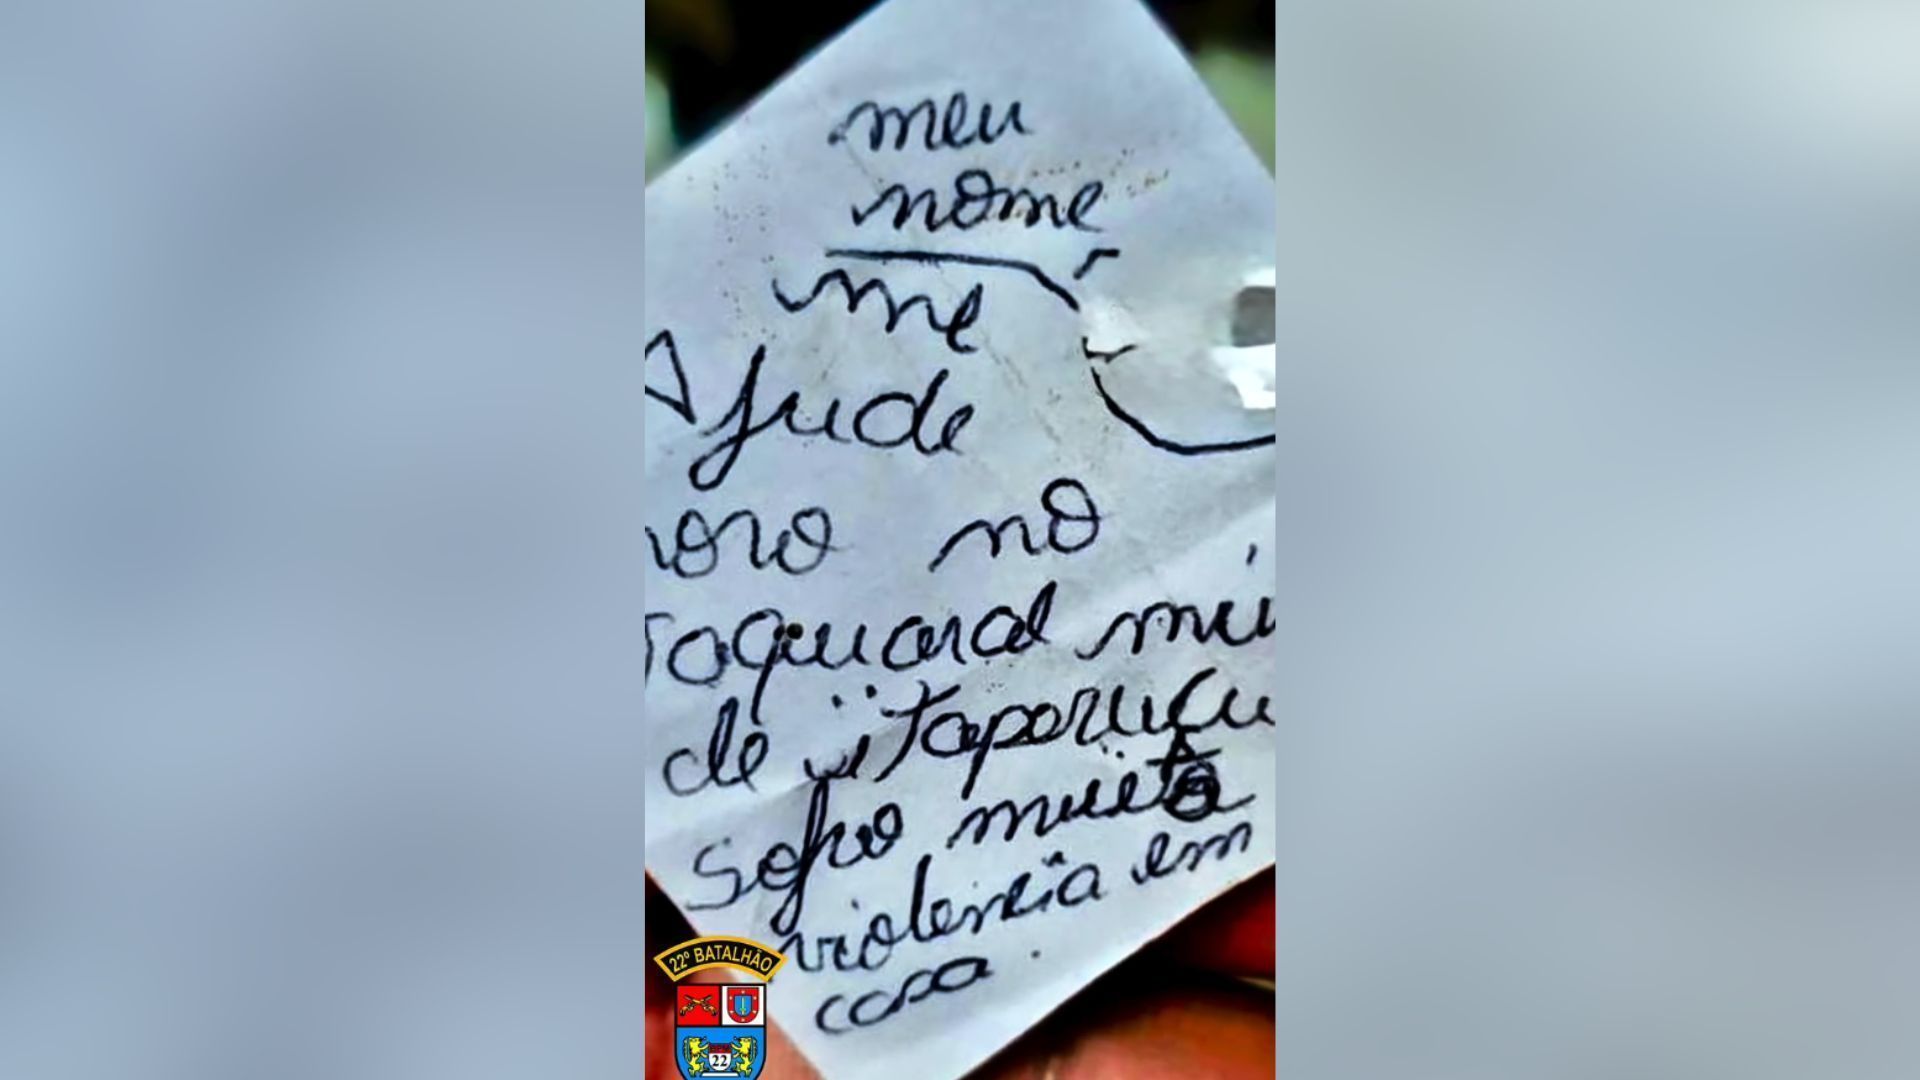 meu
nome
me
Ajude
moro no
Taquaral mui
de itaperuçu
Sofro muito
violencia em
casa.
22º BATALHÃO
BPM
22